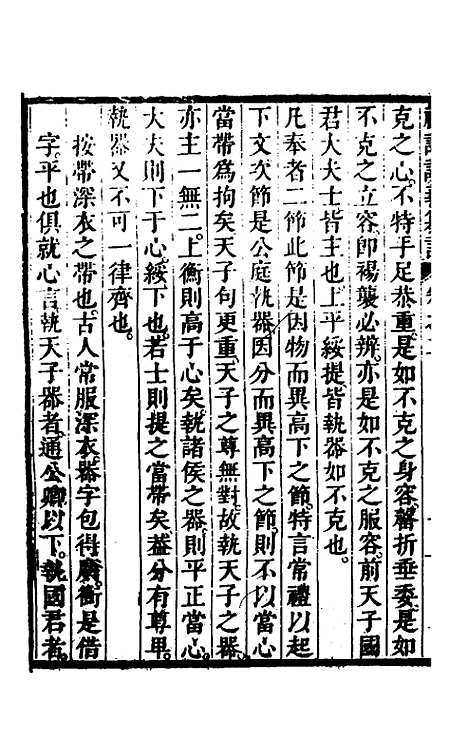 克之心。不特手足恭重。是如不克之身容。磬折垂委。是如
不克之立容。卽裼襲必辨。亦是如不克之服容。前天子國
君大夫士皆主也。上平綏提。皆執器如不克也。
凡奉者二節。此節是因物而異高下之節。特言常禮以起
下文。次節是公庭執器。因分而異高下之節。則不以當心
當帶爲拘矣。天子句更重。天子之尊無對。故執天子之器。
亦主一無二。上衡則高于心矣。執諸侯之器。則平正當心。
大夫則下于心。綏下也。若士則提之當帶矣。蓋分有尊卑。
執器又不可一律齊也。
按帶深衣之帶也。古人常服深衣。器字包得廣。衡是借
字。平也。俱就心言。執天子器者。通公卿以下。執國君者。